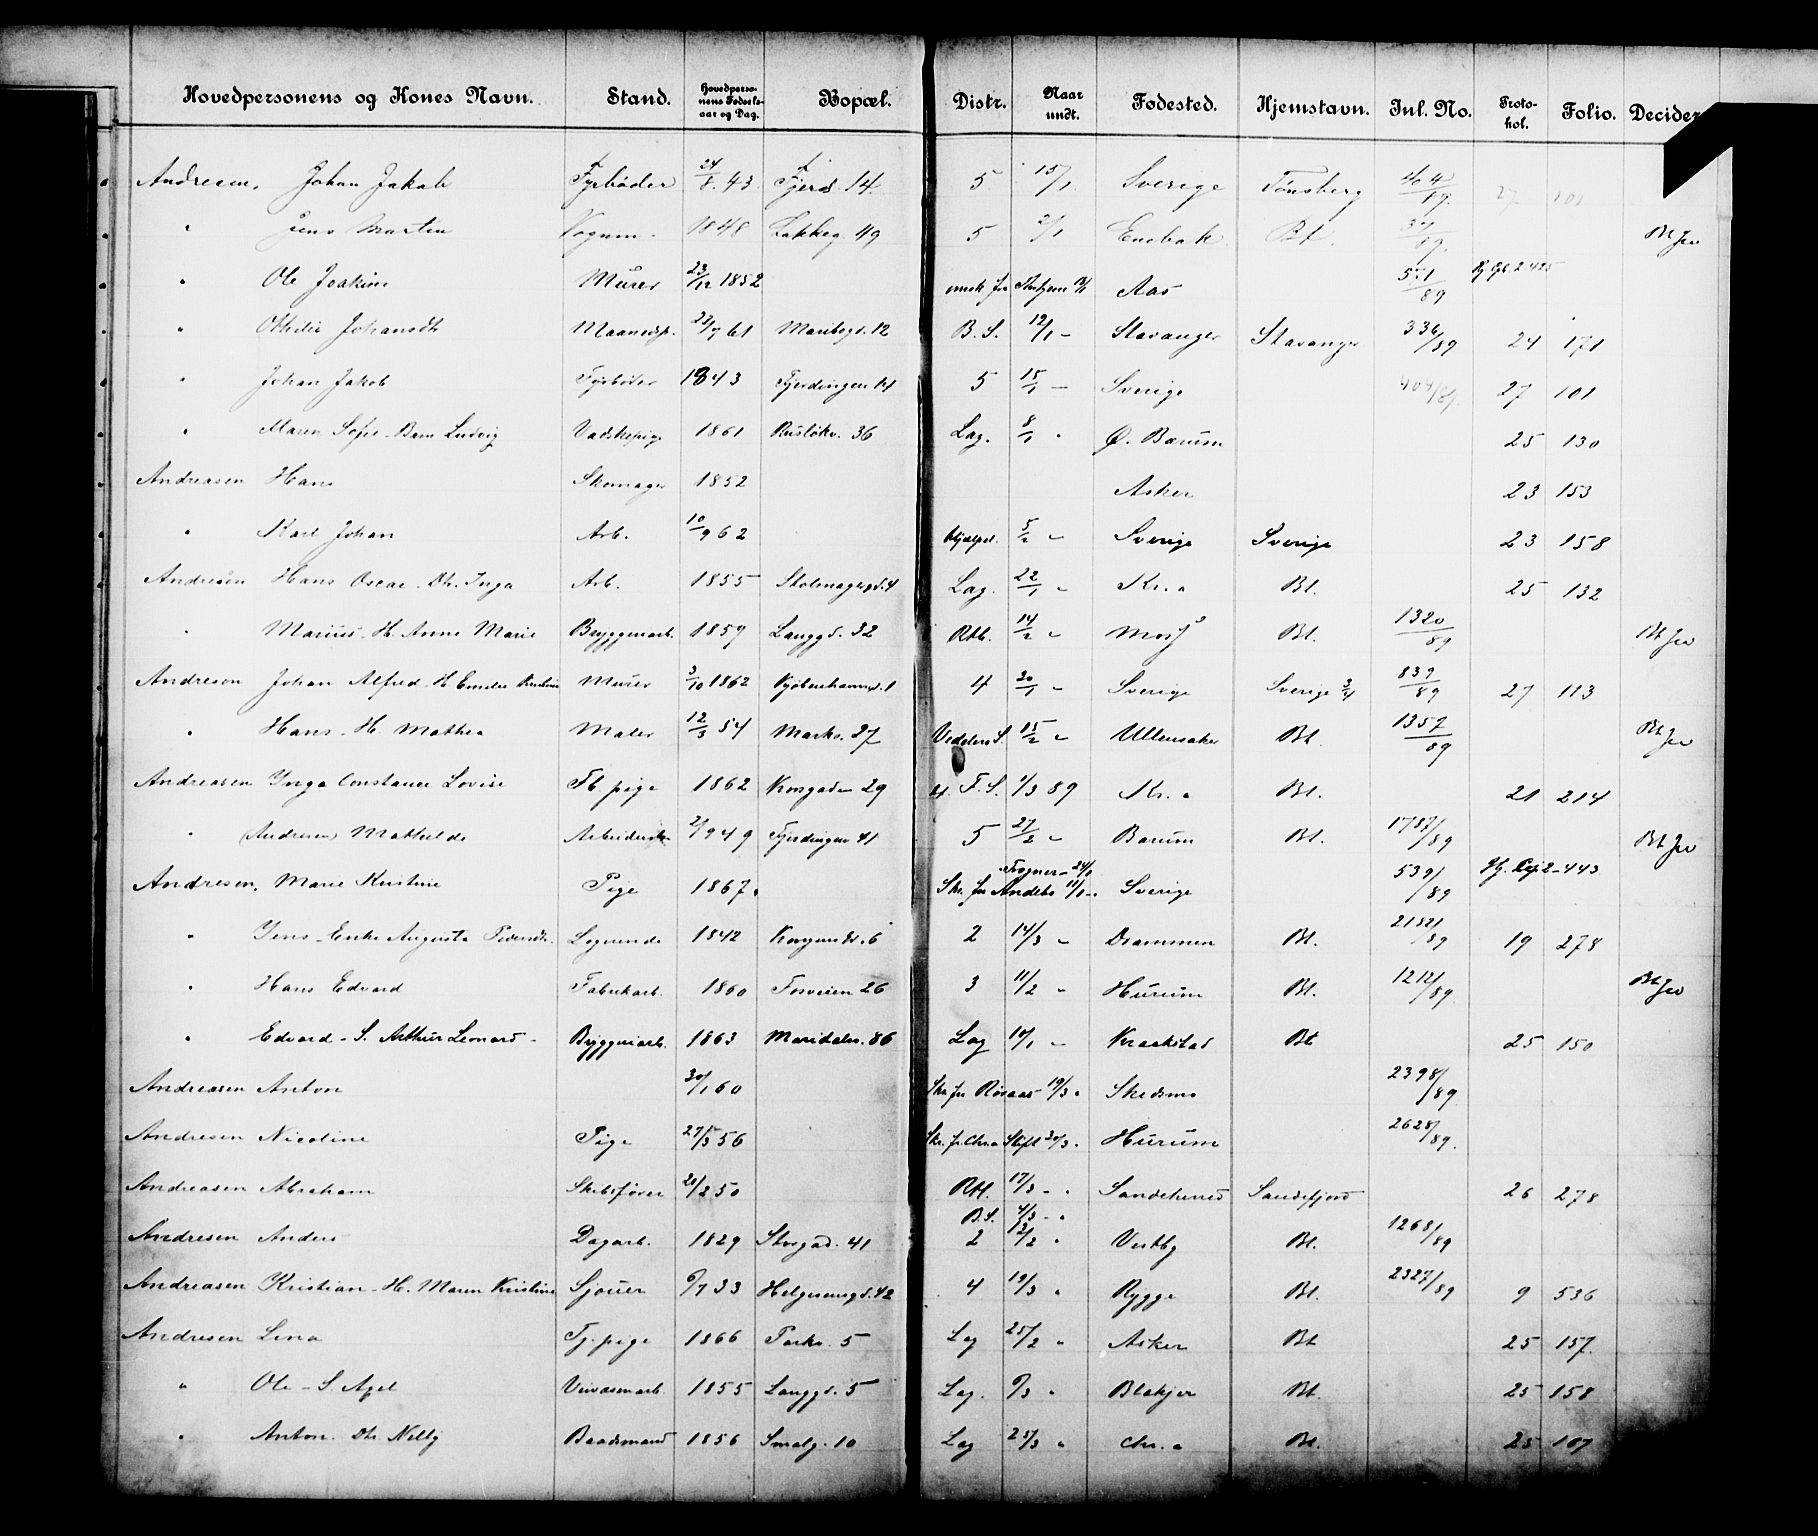 Hovedpersonens og Kones Navn. Stand. Hovedperso-nens Fødsels-aar og Dag. Bopæl. Distr. Naar undt. Fødested. Hjemstavn. Inl. No. Proto-kol. Folio. Decider
Andresen, Johan Jakob Fyrbøder 24/8 43. Fjerd. 14 5 15/1 Sverige Tønsberg 404/89. 27 101
" Jens Martin Vognm. 1848 Lakkeg. 49 5 2/1 Enebak Bt. 37/89.
" Ole Joakim Murer 23/12 1852 Aas 571/89
" Othelie Johansdt Maanedsp. 22/7 61 Maribogd. 12 B. S. 12/1 - Stavanger Stavanger 336/89 24 171
" Johan Jakob Fyrbøder 1843 Fjerdingen 14 5 15/1 - Sverige 404/89. 27 101
" Maren Sofie - Barn Ludvig Vadskepige 1861 Rusløkv. 36 Lag. 8/1 " Ø. Bærum 25 130
Andreasen Hans Skomager 1852 Asker 23 153
" Karl Johan Arb. 10/9 62 Hjælpel. 5/2 " Sverige Sverige 23 158
Andresen Hans Oscar - Dtr. Inga Arb. 1855 Stolmagergd. 4 Lag. 22/1 " Kr.a Bt. 25 132
" Marius - H. Anne Marie Bryggeriarb. 1859 Langgd. 32 Rtb. 14/2 " Moss Bt. 1320/89
Andreson Johan Alfred - H. Emelie Kristine Murer 3/10 1862 Kjøbenhavnsgd. 1 4 30/1 " Sverige Sverige 3/4 839/89 27 113
" Hans - H. Mathea Maler 12/3 54 Markv. 27 Vedelers S. 15/2 " Ullensaker Bt. 1357/89
Andreasen Inga Constance Lovise Fb pige 1862 Korsgaden 29 4. F. S. 1/3 89 Kr.a Bt. 21 214
" (Andresen) Mathilde Arbeiderske 2/9 49 Fjerdingen 41 5 27/2 " Bærum Bt. 1787/89
Andresen, Marie Kristine Pige 1867. Skr. fra Andebo 11/1 - Frogner - 24/1 Sverige 539/89 443
" Jens - Enke Augusta Pedersdtr. Logerende 1842 Korsgaden 6 2 14/3 " Drammen Bt. 2182/89 19 278
" Hans Edvard Fabrikarb. 1860 Fosveien 26 3 11/2 " Hurum Bt. 1212/89.
" Edvard - S. Arthur Leonard - Bryggeriarb. 1863 Maridalsv. 86 Lag 14/1 " Kraakstad Bt 25 150
Andreasen Anton 30/1 60 Skr. fra Røraas 19/3 " Skedsmo 2398/89.
Andresen Nicoline Pige 27/3 56 Skr. fr. Chr.a Stift 20/3 " Hurum 2628/89.
Andreasen Abraham Skibsfører 20/2 50 Rtt. 17/3 - " Sandeherred Sandefjord 26 278
B.S. 4/3 - "
Andresen Anders Dagarb. 1829 Storgad. 41 2 12/2 " Vestby Bt. 1268/89
Andreasen Kristian - H. Maren Kristine Sjouer 6/7 33 Helgesensgd. 42 4 19/3 " Rygge Bt. 2327/89 9 536
Andresen Lina Tj. pige 1866 Parkv. 5 Lag 25/2 " Asker Bt 25 157.
" Ole - S. Axel 1855 Langgd. 5 Lag. 9/3 " Blakjer Bt. 25 158
" Anton - Dtr. Nelly Baadsmand 1856 Smalg. 10 Lag 25/3 " Chr.a Bt. 25 167